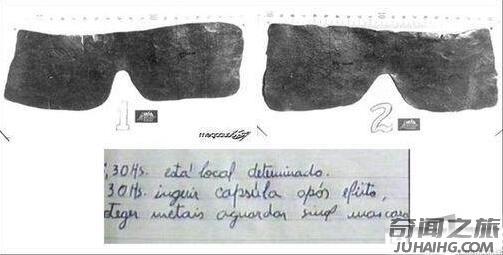 1
2
:30Hs. está local determinado.
30Hs. ingerir capsúla após efeito,
teger metais aguardar sinal mascara
奇闻之旅
JUHAIHG.COM